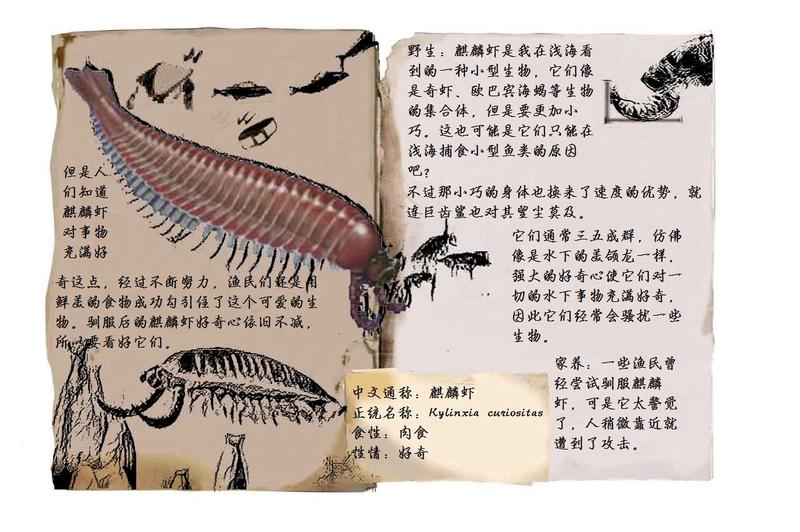 野生：麒麟虾是我在浅海看
到的一种小型生物，它们像
是奇虾、欧巴宾海蝎等生物
的集合体，但是要更加小
巧。这也可能是它们只能在
浅海捕食小型鱼类的原因
吧？
不过那小巧的身体也换来了速度的优势，就
连巨齿鲨也对其望尘莫及。
它们通常三五成群，仿佛
像是水下的美颌龙一样，
强大的好奇心使它们对一
切的水下事物充满好奇，
因此它们经常会骚扰一些
生物。
家养：一些渔民曾
经尝试驯服麒麟
虾，可是它太警觉
了，人稍微靠近就
遭到了攻击。
但是人
们知道
麒麟虾
对事物
充满好
奇这点，经过不断努力，渔民们还是用
鲜美的食物成功勾引住了这个可爱的生
物。驯服后的麒麟虾好奇心依旧不减，
所以要看好它们。
中文通称：麒麟虾
正统名称：Kylinxia curiositas
食性：肉食
性情：好奇